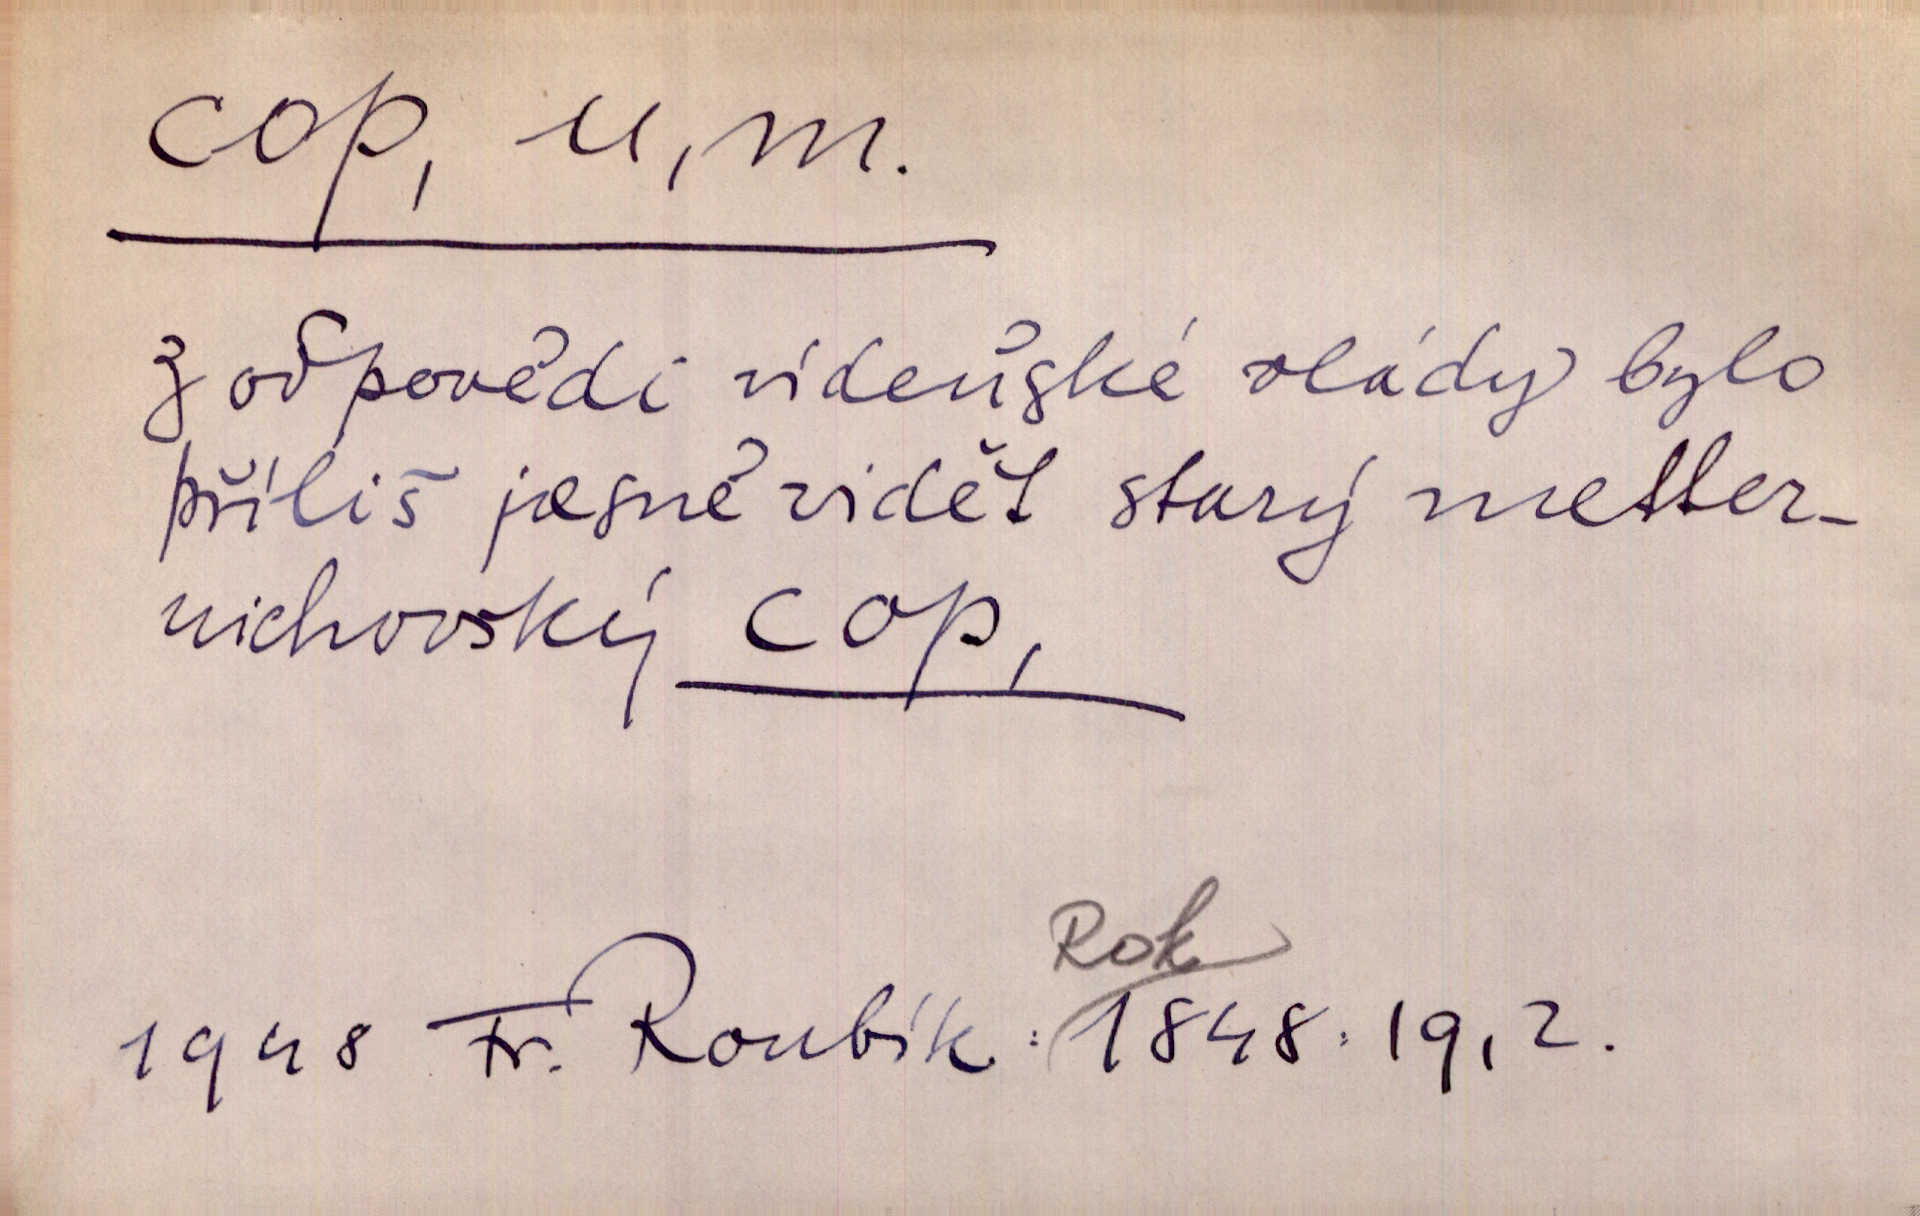 cop, u, m.
z odpovědi vídeňské vlády bylo
příliš jasně vidět starý metter-
nichovský cop,
Rok
1948 Fr. Roubík: 1848: 19, 2.